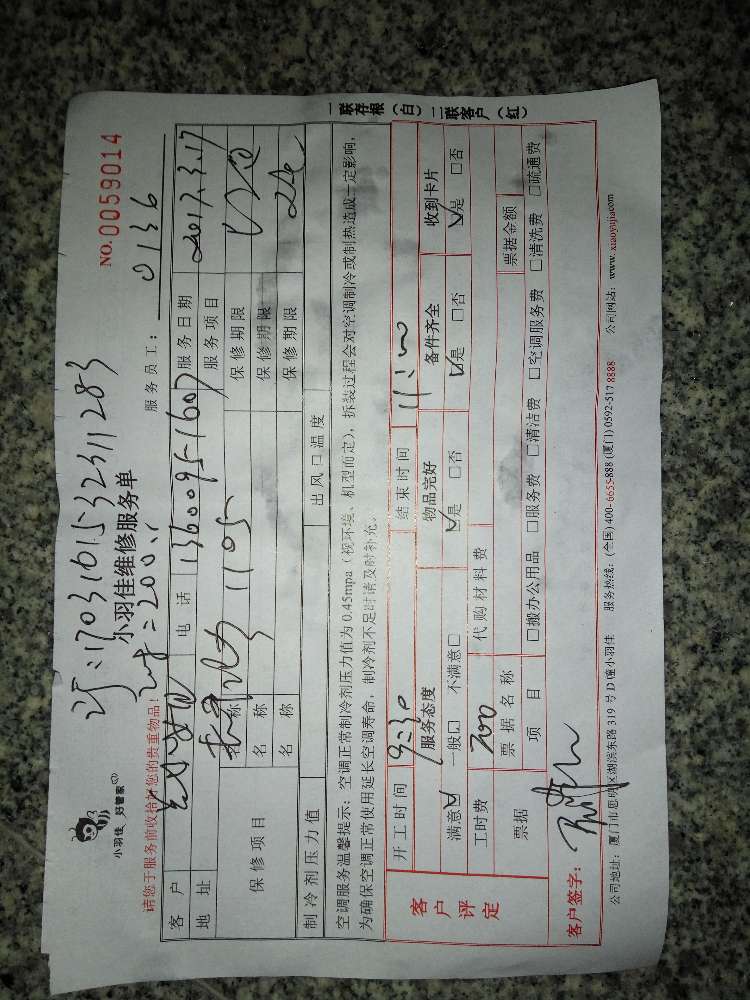 小羽佳 好管家
NO.0059014
170316153231283
小羽佳维修服务单
2时=200
服务员工: 0136
请您于服务前收拾好您的贵重物品!
客户 电话 13600951607 服务日期 2017.3.17
地址 1105 服务项目
保修项目 名称 保修期限
名称 保修期限
名称 保修期限
制冷剂压力值 出风口温度
空调服务温馨提示: 空调正常制冷剂压力值为0.45mpa(视环境、机型而定), 拆装过程会对空调制冷或制热造成一定影响,
为确保空调正常使用延长空调寿命, 制冷剂不足时请及时补充。
客户评定
开工时间 9:30 结束时间 11:00
服务态度 物品完好 备件齐全 收到卡片
满意☑ 一般□ 不满意□ ☑是 □否 ☑是 □否 ☑是 □否
工时费 200 代购材料费
票据 票据名称 票据金额
项目 □搬办公用品 □服务费 □清洁费 □空调服务费 □清洗费 □疏通费
客户签字:
公司地址: 厦门市思明区湖滨东路319号D幢小羽佳 服务热线: (全国) 400-6655-888 (厦门) 0592-517 8888 公司网站: www.xiaoyujiacom
一联存根(白) 二联客户(红)